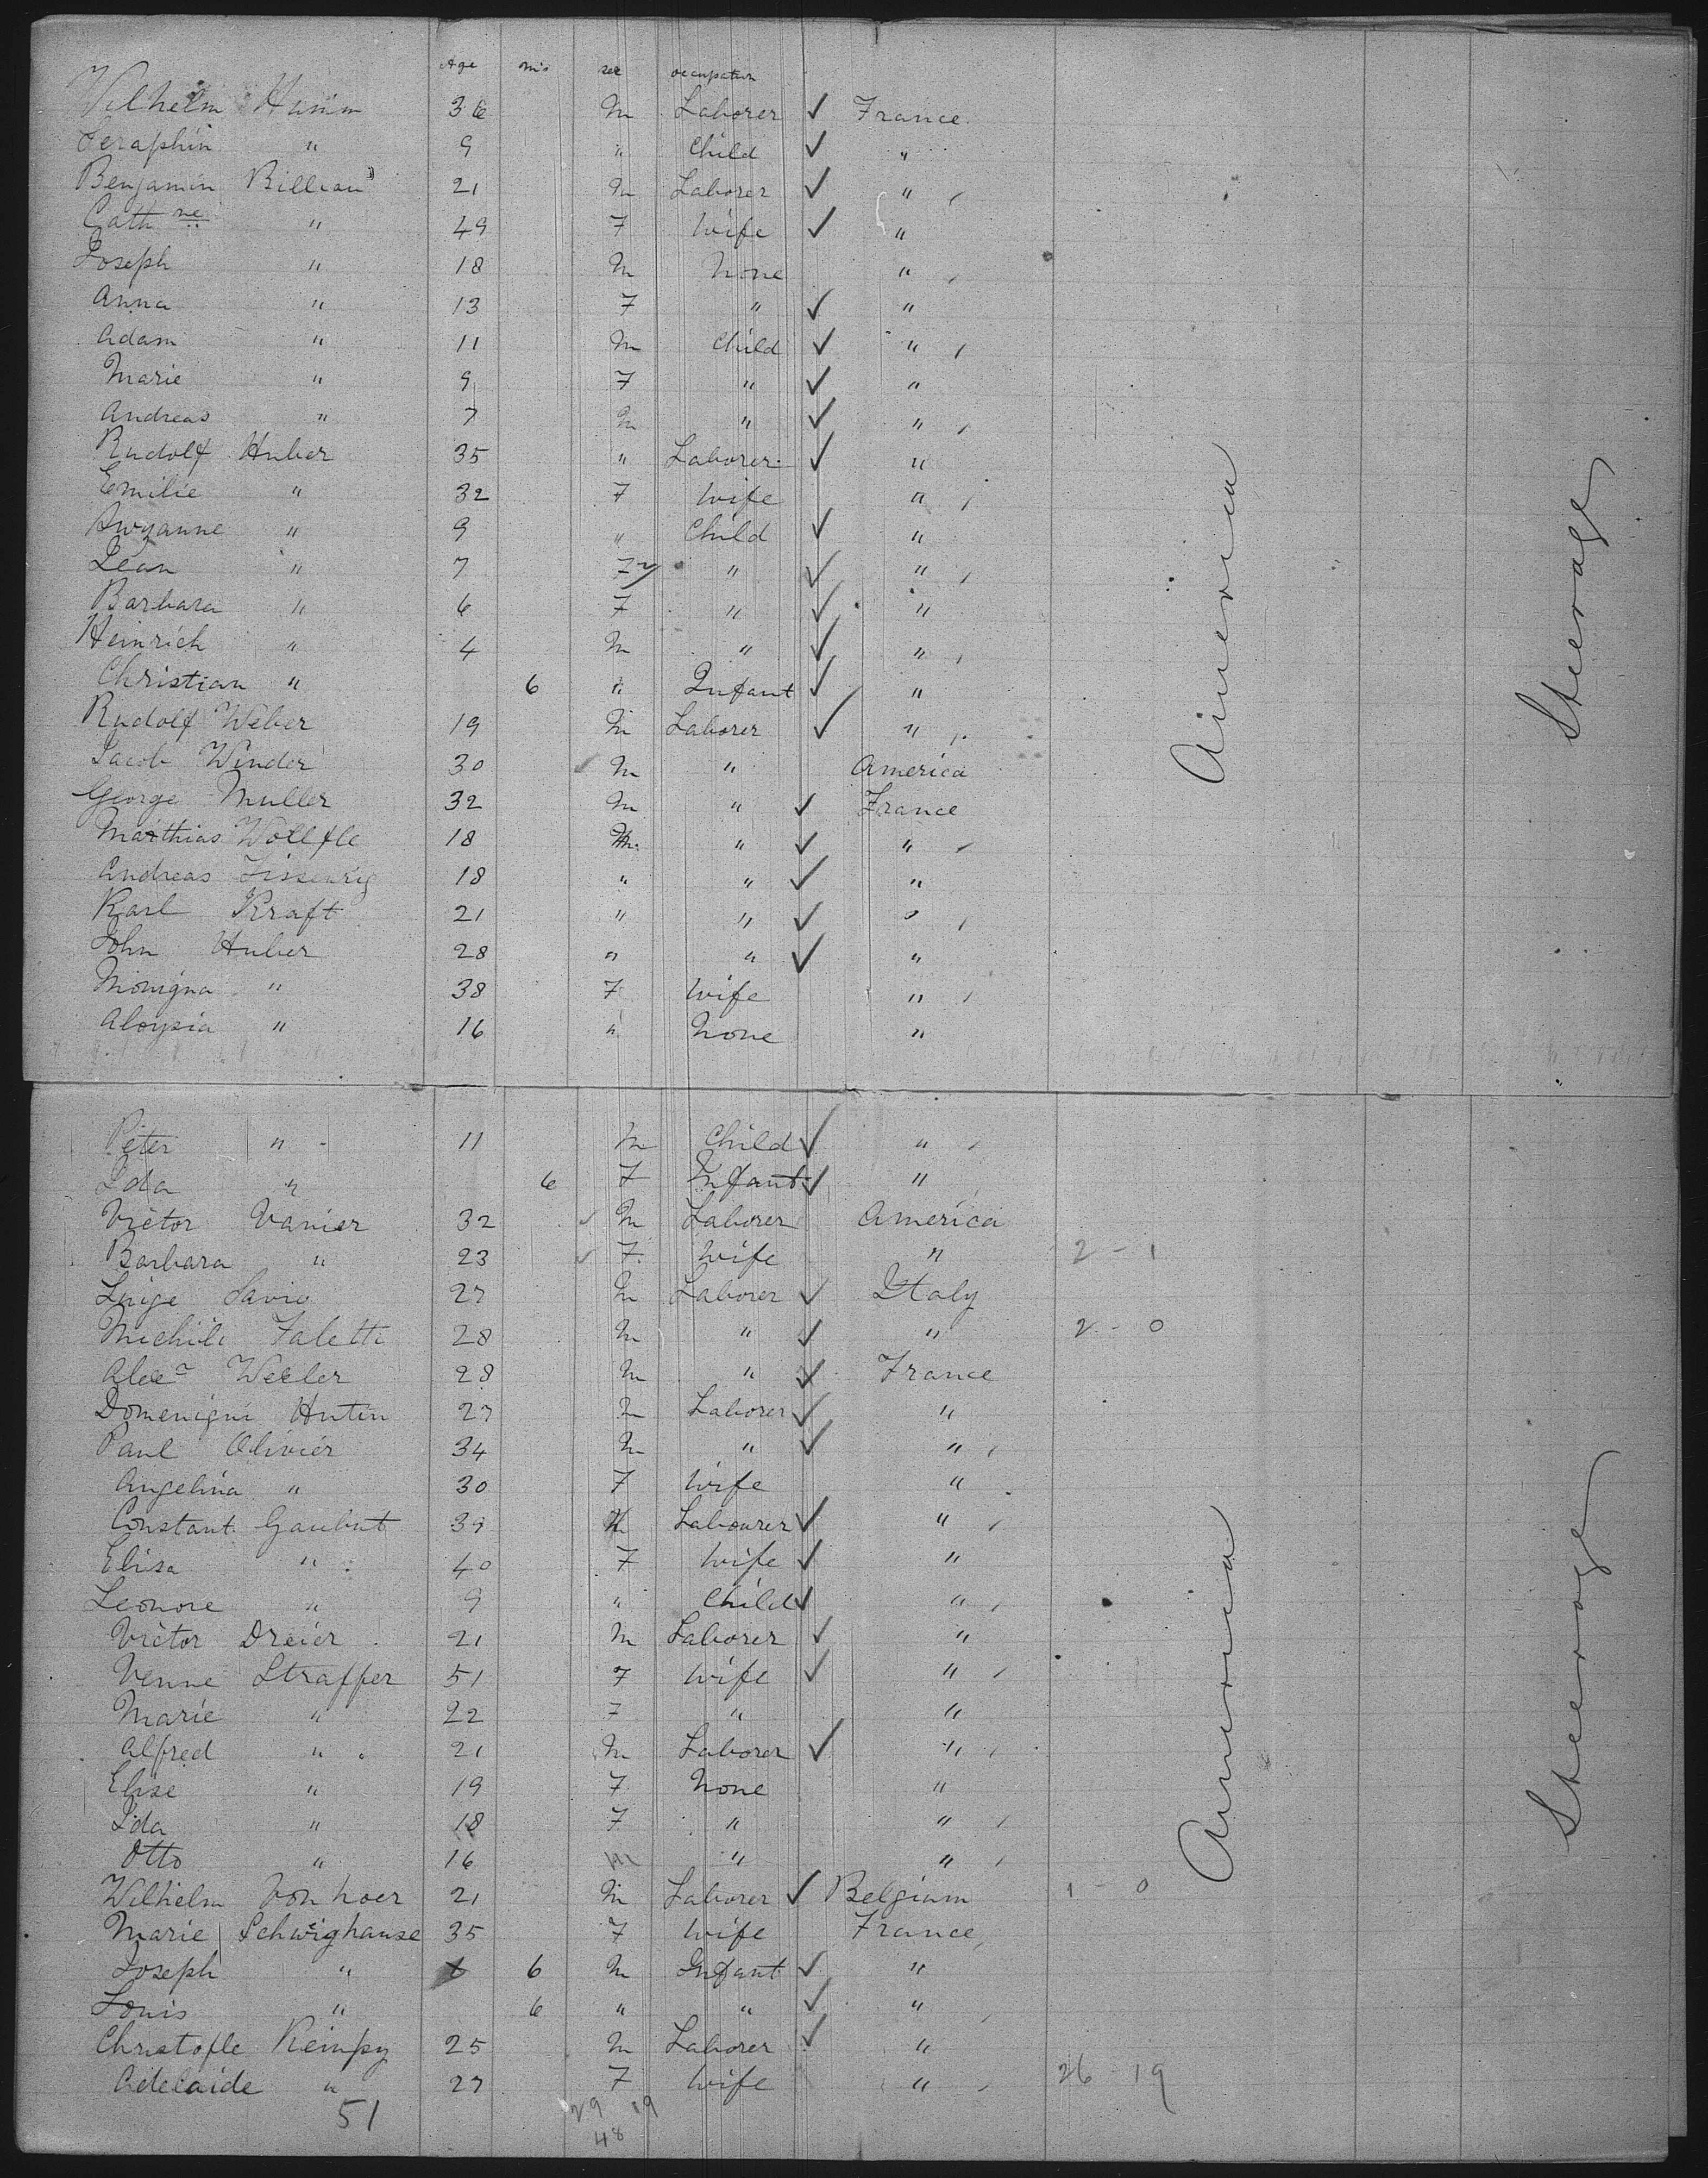 Age mo sex occupation
Wilhelm Hamm 36 m Laborer ✓ France
Seraphin " 9 " Child ✓ "
Benjamin Billian 21 m Laborer ✓ "
Cathne " 49 F Wife ✓ "
Joseph " 18 m None "
Anna " 13 F " ✓ "
Adam " 11 m Child ✓ "
Marie " 9 F " ✓ "
Andreas " 7 m " ✓ "
Rudolf Huber 35 " Laborer ✓ "
Emilie " 32 F Wife "
Suzanne " 9 " Child ✓ "
Jean " 7 " ✓ "
Barbara " 6 F " ✓ "
Heinrich " 4 m " ✓ "
Christian " 6 " Infant ✓ "
Rudolf Weber 19 m Laborer ✓ "
Jacob Winder 30 ✓ m " America
George Muller 32 m " ✓ France
Matthias Wollfle 18 m " ✓ "
Andreas 18 " " ✓ "
Karl Kraft 21 " " ✓ "
John Huber 28 " " ✓ "
Monigna " 38 F Wife "
Aloysia " 16 " None "
America
Steerage
Peter " 11 m Child ✓ "
Ida " 6 F Infant ✓ "
Victor Vanier 32 ✓ m Laborer America
Barbara " 23 ✓ F Wife " 2 - 1
Luige Savio 27 m Laborer ✓ Italy
Michili Faletti 28 m " ✓ " 2 - 0
Alexr Weeler 28 m " ✓ France
Domenigni Hutin 27 m Laborer ✓ "
Paul Olivier 34 m " ✓ "
Angelina " 30 F Wife "
Constant Gaubut 39 m Labourer ✓ "
Elisa " 40 F Wife ✓ "
Leonore " 9 " Child ✓ "
Victor Dreier 21 m Laborer ✓ "
Venne Straffer 51 F Wife ✓ "
Marie " 22 F " "
Alfred " 21 m Laborer ✓ "
Elise " 19 F None "
Ida " 18 F " "
Otto " 16 m " "
Wilhelm Von hoer 21 m Laborer ✓ Belgium 1 - 0
Marie Schwighause 35 F Wife France
Joseph " 6 m Infant ✓ "
Louis " 6 " " ✓ "
Christofle Keimpy 25 m Laborer ✓ "
Adelaide " 27 F Wife " 26 19
51 29 19
48
America
Steerage